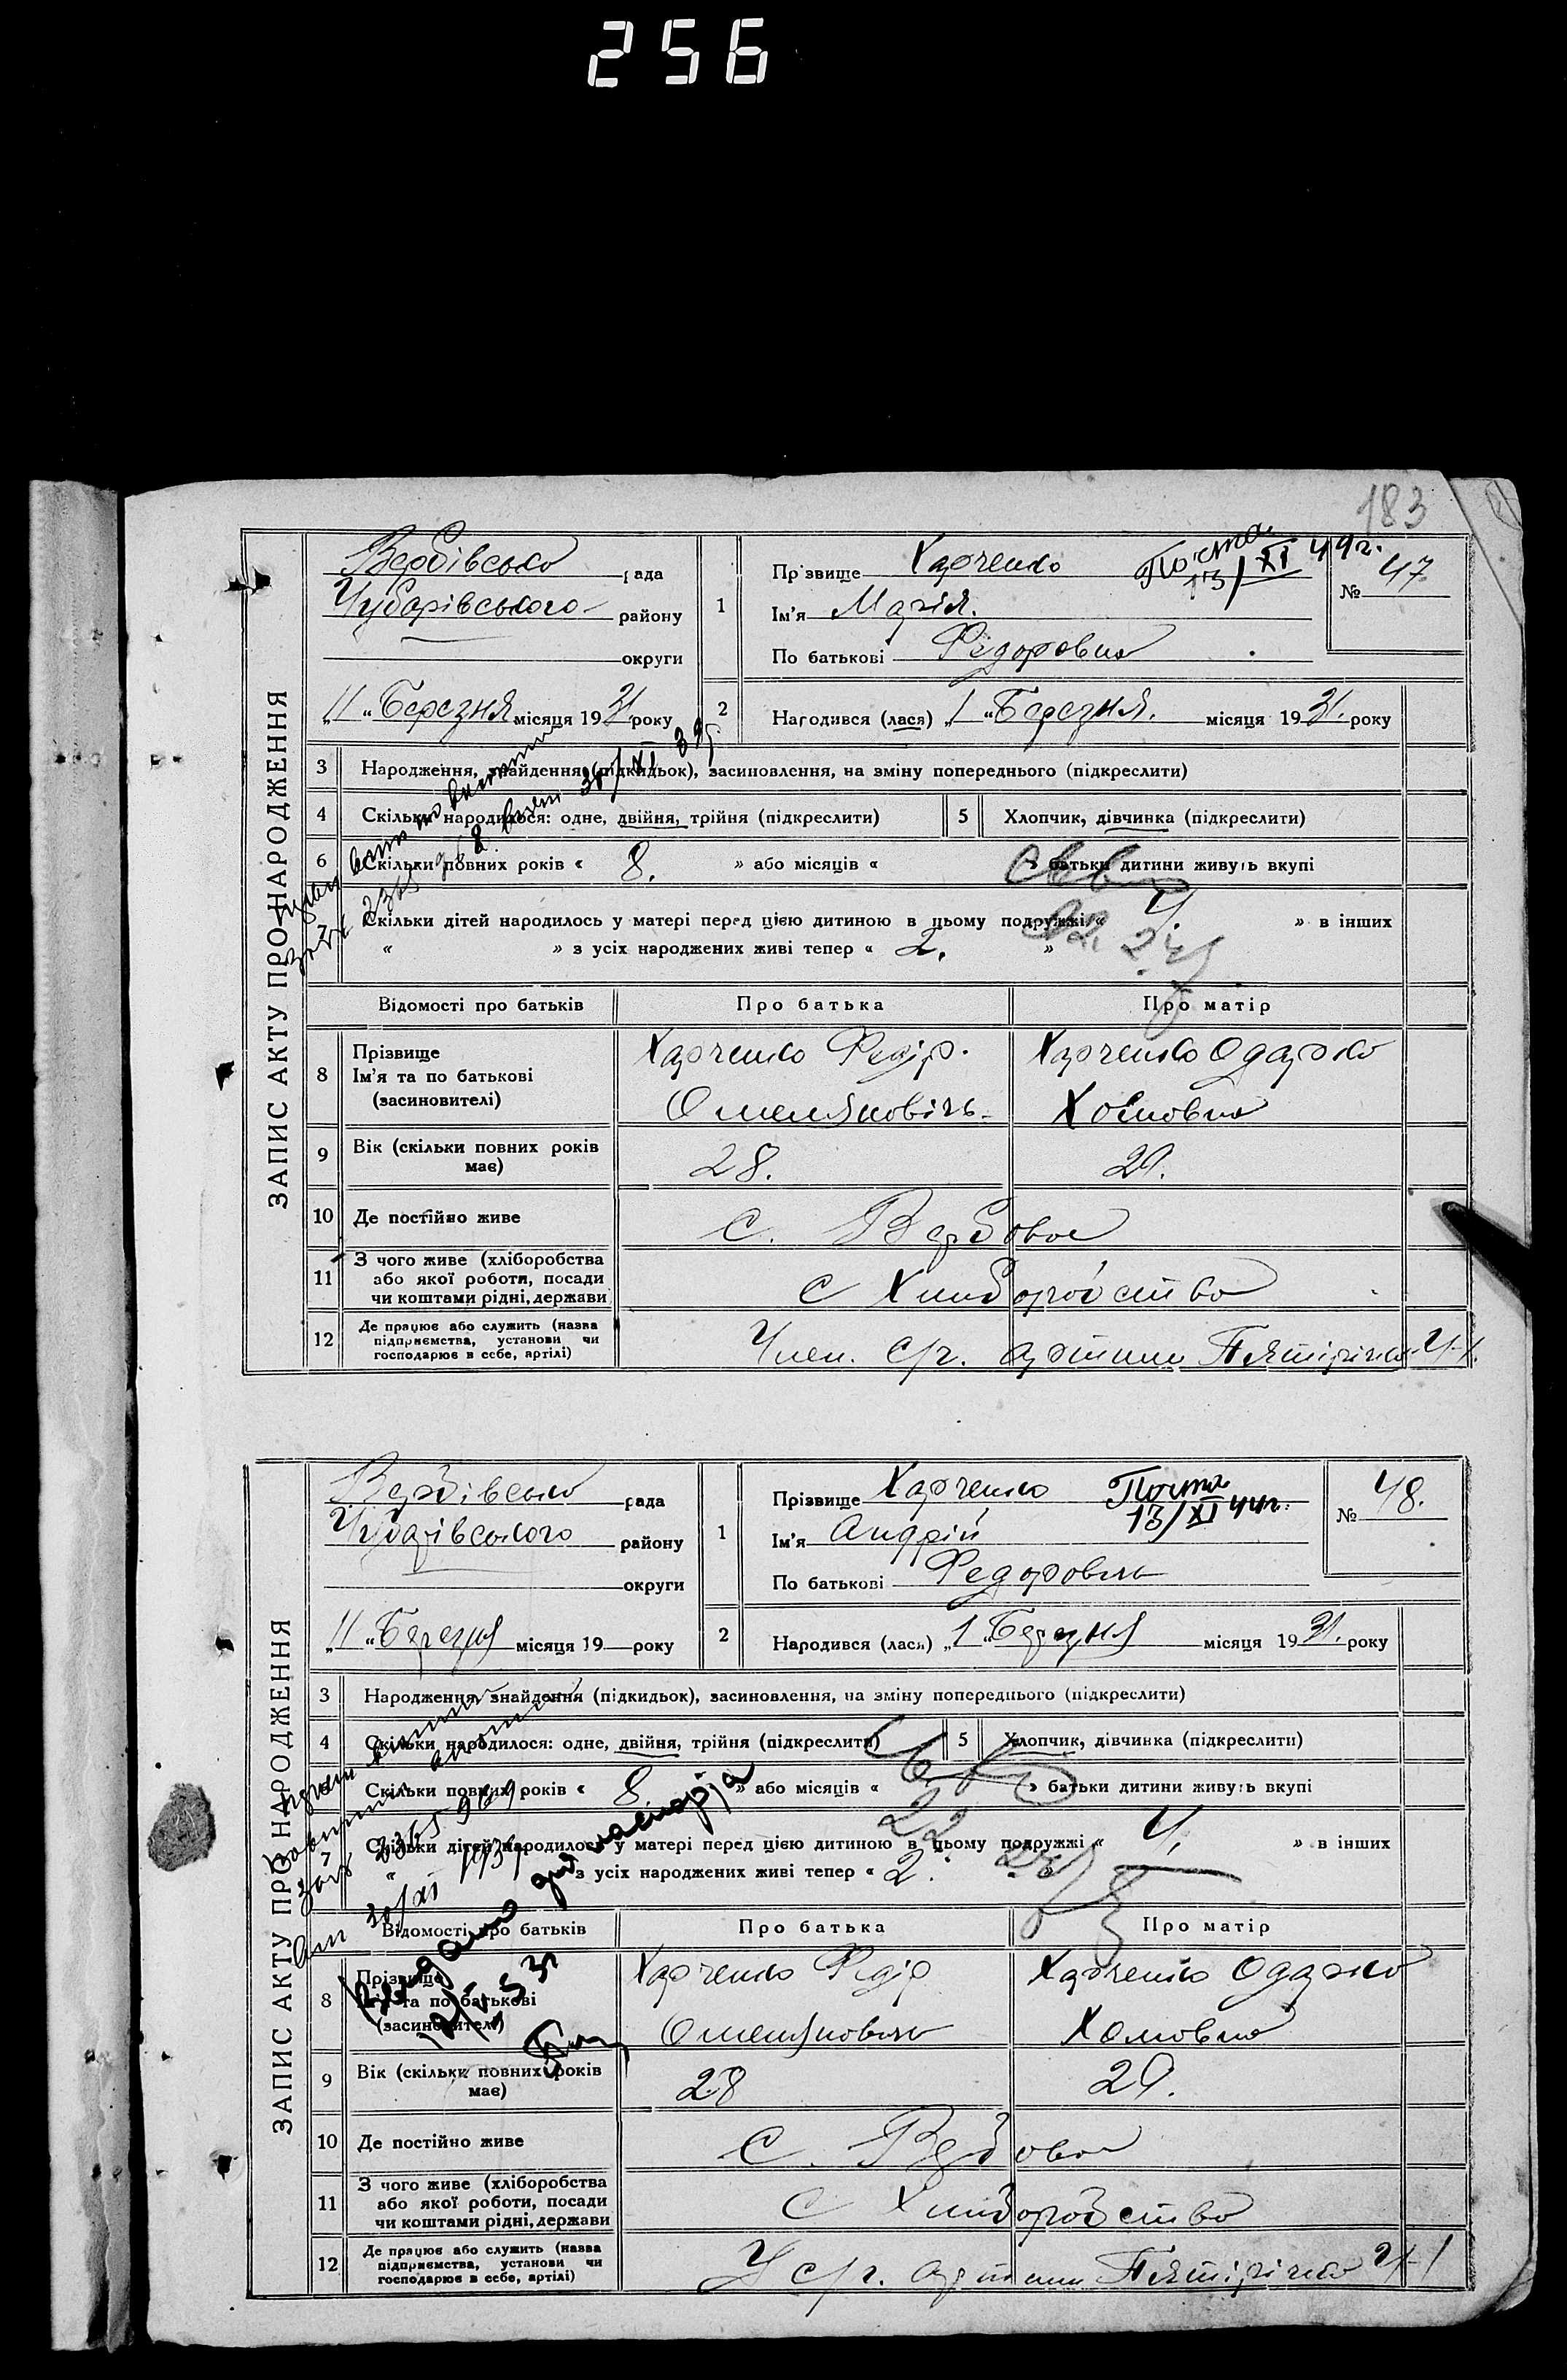 256
183
ЗАПИС АКТУ ПРО НАРОДЖЕННЯ
Вербівсько рада
Чубарівського району
округи
„11“ Березня місяця 1931 року
1
Прізвище Харченко
Ім'я Марія.
По батькові Федоровна
Почта
13/XI 44г.
№ 47
2
Народився (лася) „1“ Березня. місяця 1931. року
3 Народження, знайдення (підкидьок), засиновлення, на зміну попереднього (підкреслити)
4 Скільки народилося: одне, двійня, трійня (підкреслити)
5 Хлопчик, дівчинка (підкреслити)
6 Скільки повних років « 8. » або місяців « » батьки дитини живуть вкупі
7 Скільки дітей народилось у матері перед цією дитиною в цьому подружжі « 4. » в інших
« » з усіх народжених живі тепер « 2. »
Відомості про батьків Про батька Про матір
8 Прізвище
Ім'я та по батькові
(засиновителі)
Харченко Федір.
Омелянович.
Харченко Одарка
Хомовна
9 Вік (скільки повних років має) 28. 29.
10 Де постійно живе с. Вербове
11 З чого живе (хліборобства
або якої роботи, посади
чи коштами рідні, держави
с Хлиборобство
12 Де працює або служить (назва
підприємства, установи чи
господарює в себе, артілі)
Член. с/г. артили Пятірічка
ЗАПИС АКТУ ПРО НАРОДЖЕННЯ
Вербівсько рада
Чубарівського району
округи
„11“ Березня місяця 19 року
1
Прізвище Харченко
Ім'я Андрій
По батькові Федорович
Почта
13/XI 44г.
№ 48.
2
Народився (лася) „1“ Березня місяця 1931. року
3 Народження, знайдення (підкидьок), засиновлення, на зміну попереднього (підкреслити)
4 Скільки народилося: одне, двійня, трійня (підкреслити)
5 Хлопчик, дівчинка (підкреслити)
Скільки повних років « 8 » або місяців « » батьки дитини живуть вкупі
7 Скільки дітей народилось у матері перед цією дитиною в цьому подружжі « 4. » в інших
« з усіх народжених живі тепер « 2.
Відомості про батьків Про батька Про матір
8 Прізвище
Ім'я та по батькові
(засиновителі)
Харченко Федір
Омелянович
Харченко Одарка
Хомовна
9 Вік (скільки повних років має) 28 29.
10 Де постійно живе с. Вербове
11 З чого живе (хліборобства
або якої роботи, посади
чи коштами рідні, держави
с Хлиборобство
12 Де працює або служить (назва
підприємства, установи чи
господарює в себе, артілі)
Ч с/г. артили Пятірічка